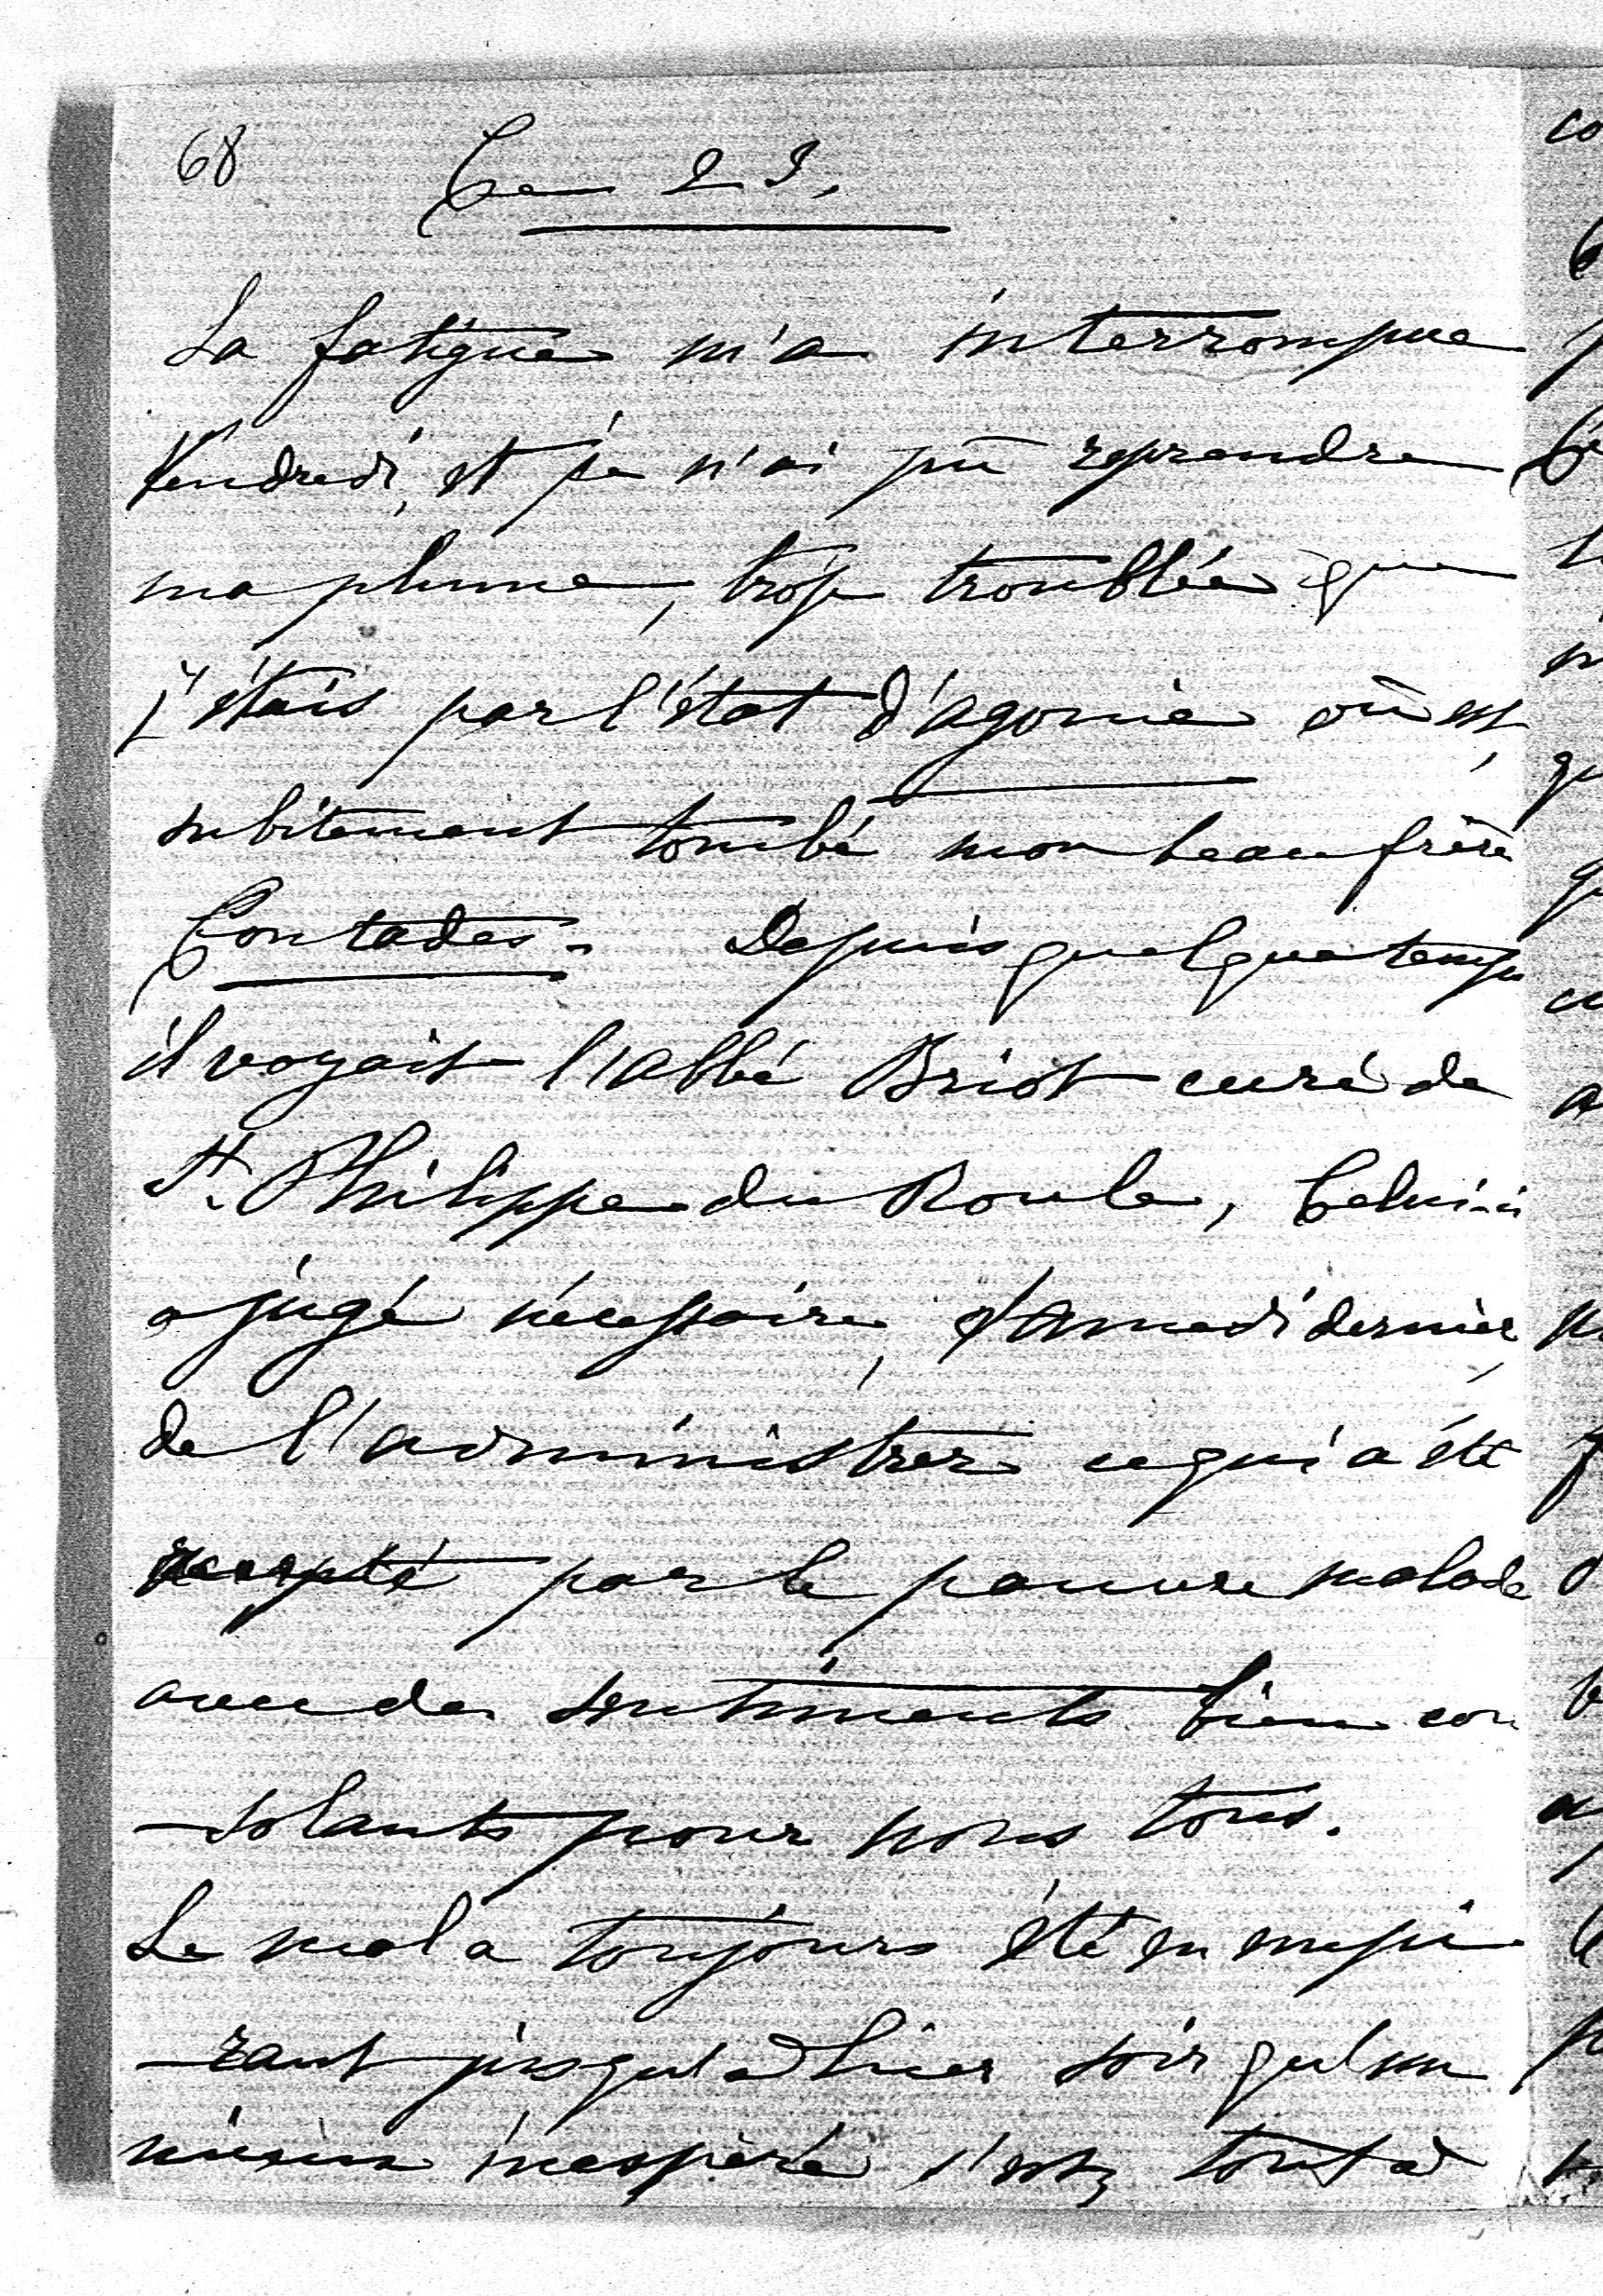 68 Ce 23,
La fatigue m'a interrompue
Vendredi, et je n'ai pû reprendre
ma plume, trop troublée que
j'étais par l'état d'agonie où est,
subitement tombé mon beau frère
Contades. Depuis quelque temps
il voyait l'abbé Briot curé de
St. Philippe du Roule, Celui-ci
a jugé nécessaire, samedi dernier,
de l'administrer ce qui a été
accepté par le pauvre malade
avec des sentiments bien con
-solants pour nous tous.
Le mal a toujours été en empi
-rant jusqu'à hier soir qu'un
mieux inespéré s'est tout à